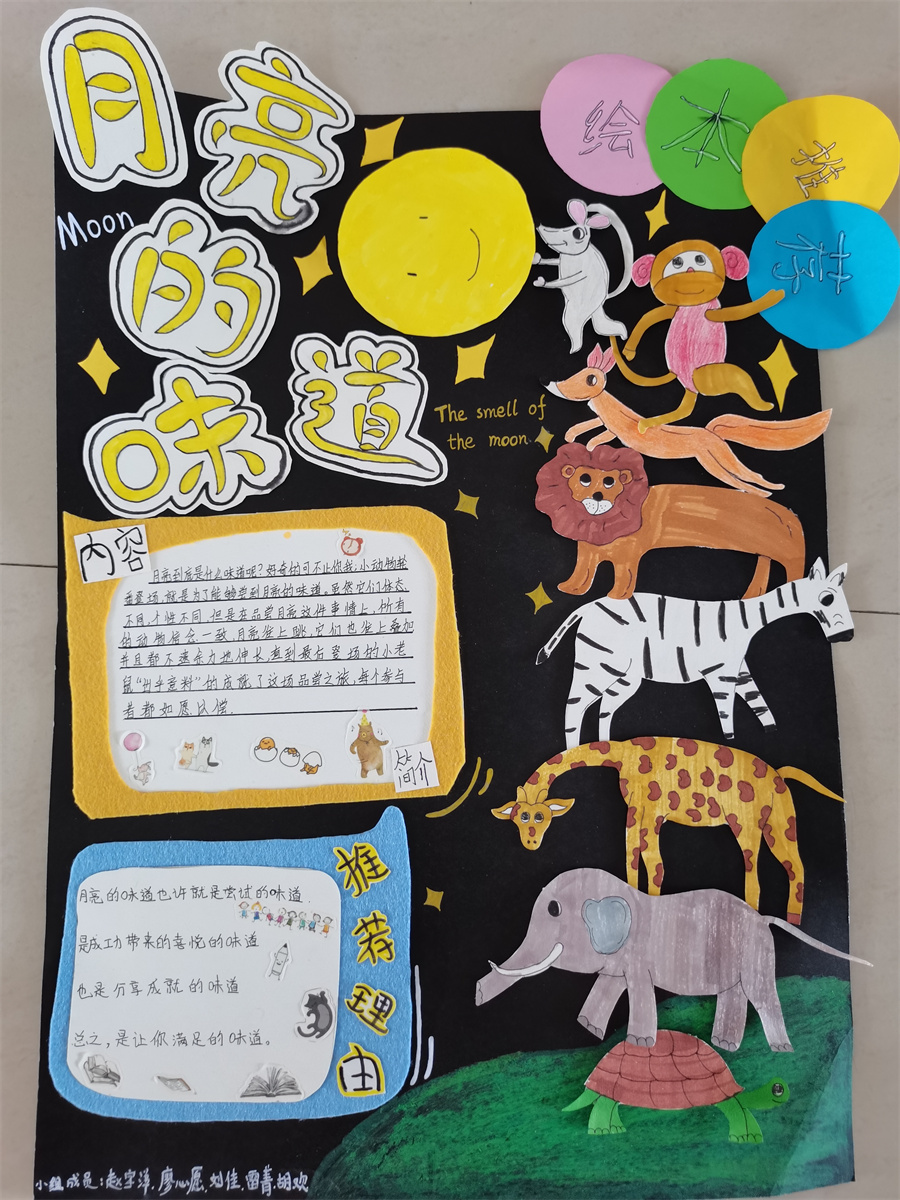 月亮
的
味道
Moon
绘本推荐
The smell of
the moon
内容
月亮到底是什么味道呢?好奇的可不止你我,小动物轮
番登场,就是为了能够尝到月亮的味道。虽然它们体态
不同,个性不同,但是在品尝月亮这件事情上,所有
的动物信念一致,月亮往上跳,它们也往上叠加
并且都不遗余力地伸长,直到最后登场的小老
鼠“出乎意料”的成就了这场品尝之旅,每个参与
者都如愿以偿.
简介
推荐理由
月亮的味道也许就是尝试的味道.
是成功带来的喜悦的味道
也是分享成就的味道
总之,是让你满足的味道。
小组成员:赵宇洋,廖心愿,刘佳,雷菁,胡欢